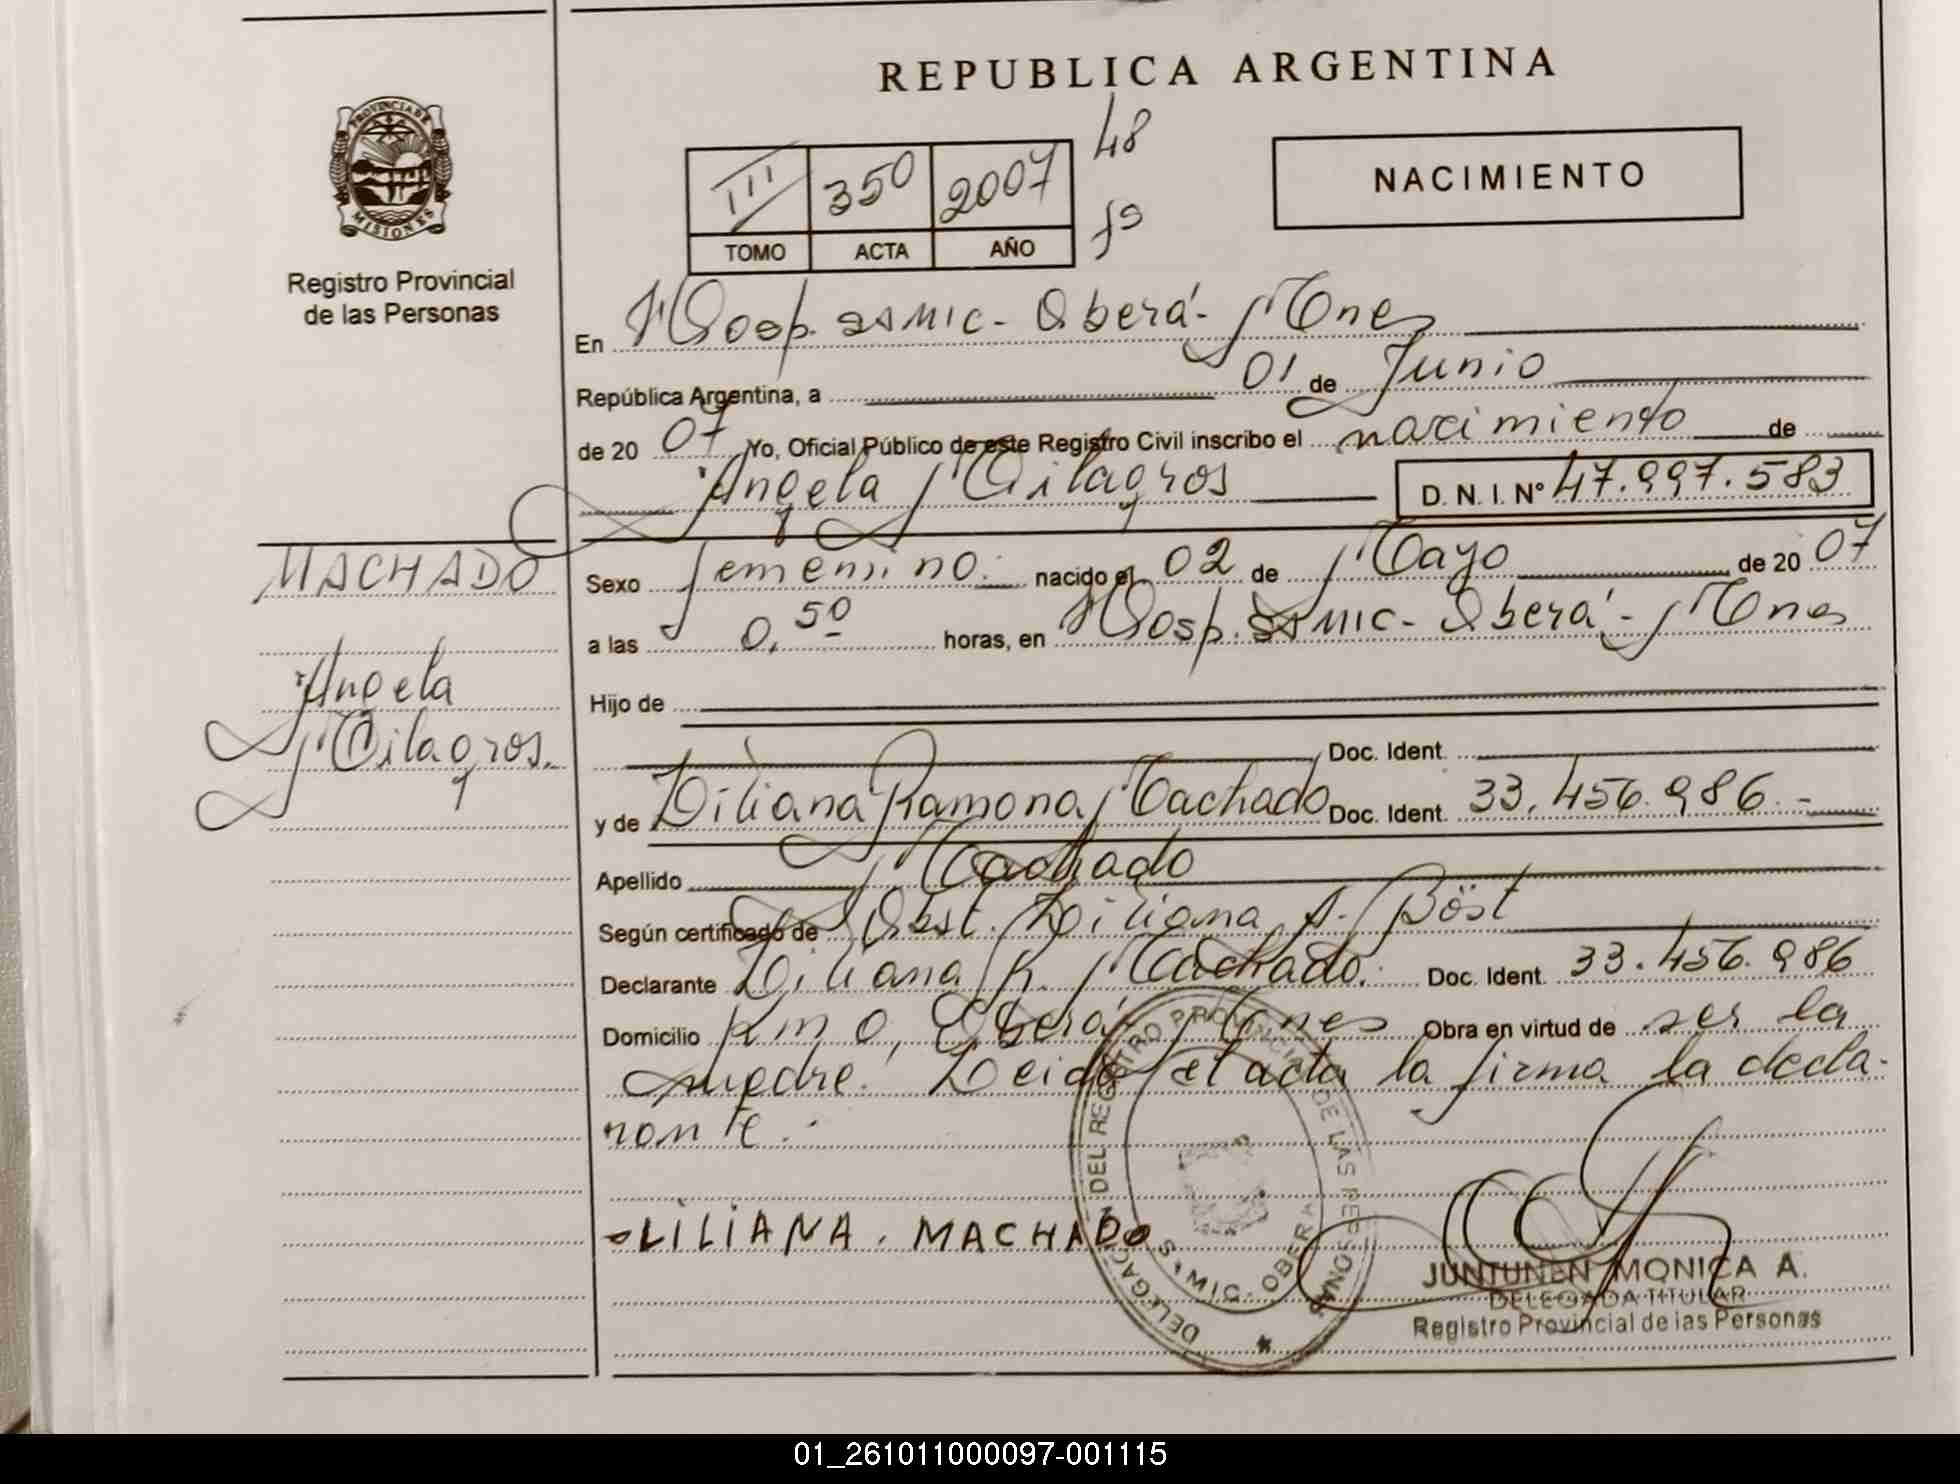 REPUBLICA ARGENTINA
PROVINCIA DE
MISIONES
Registro Provincial
de las Personas
III 350 2007 48
TOMO ACTA AÑO fº
NACIMIENTO
En Hosp. SAMIC - Oberá - Mnes
República Argentina, a 01 de Junio
de 20 07 Yo, Oficial Público de este Registro Civil inscribo el nacimiento de
Angela Milagros D. N. I. Nº 47.997.583
MACHADO
Angela
Milagros.
Sexo femenino. nacido el 02 de Mayo de 20 07
a las 0,50 horas, en Hosp. SAMIC - Oberá - Mnes
Hijo de
Doc. Ident.
y de Liliana Ramona Machado Doc. Ident. 33.456.986.-
Apellido Machado
Según certificado de Obst. Liliana A. Böst
Declarante Liliana R. Machado. Doc. Ident. 33.456.986
Domicilio km 0, Oberá, Mnes Obra en virtud de ser la
madre. Leida el acta la firma la decla-
rante.-
LILIANA. MACHADO
DELEGACION DEL REGISTRO PROVINCIAL DE LAS PERSONAS
OBERA
JUNTUNEN MONICA A.
DELEGADA TITULAR
Registro Provincial de las Personas
01_261011000097-001115